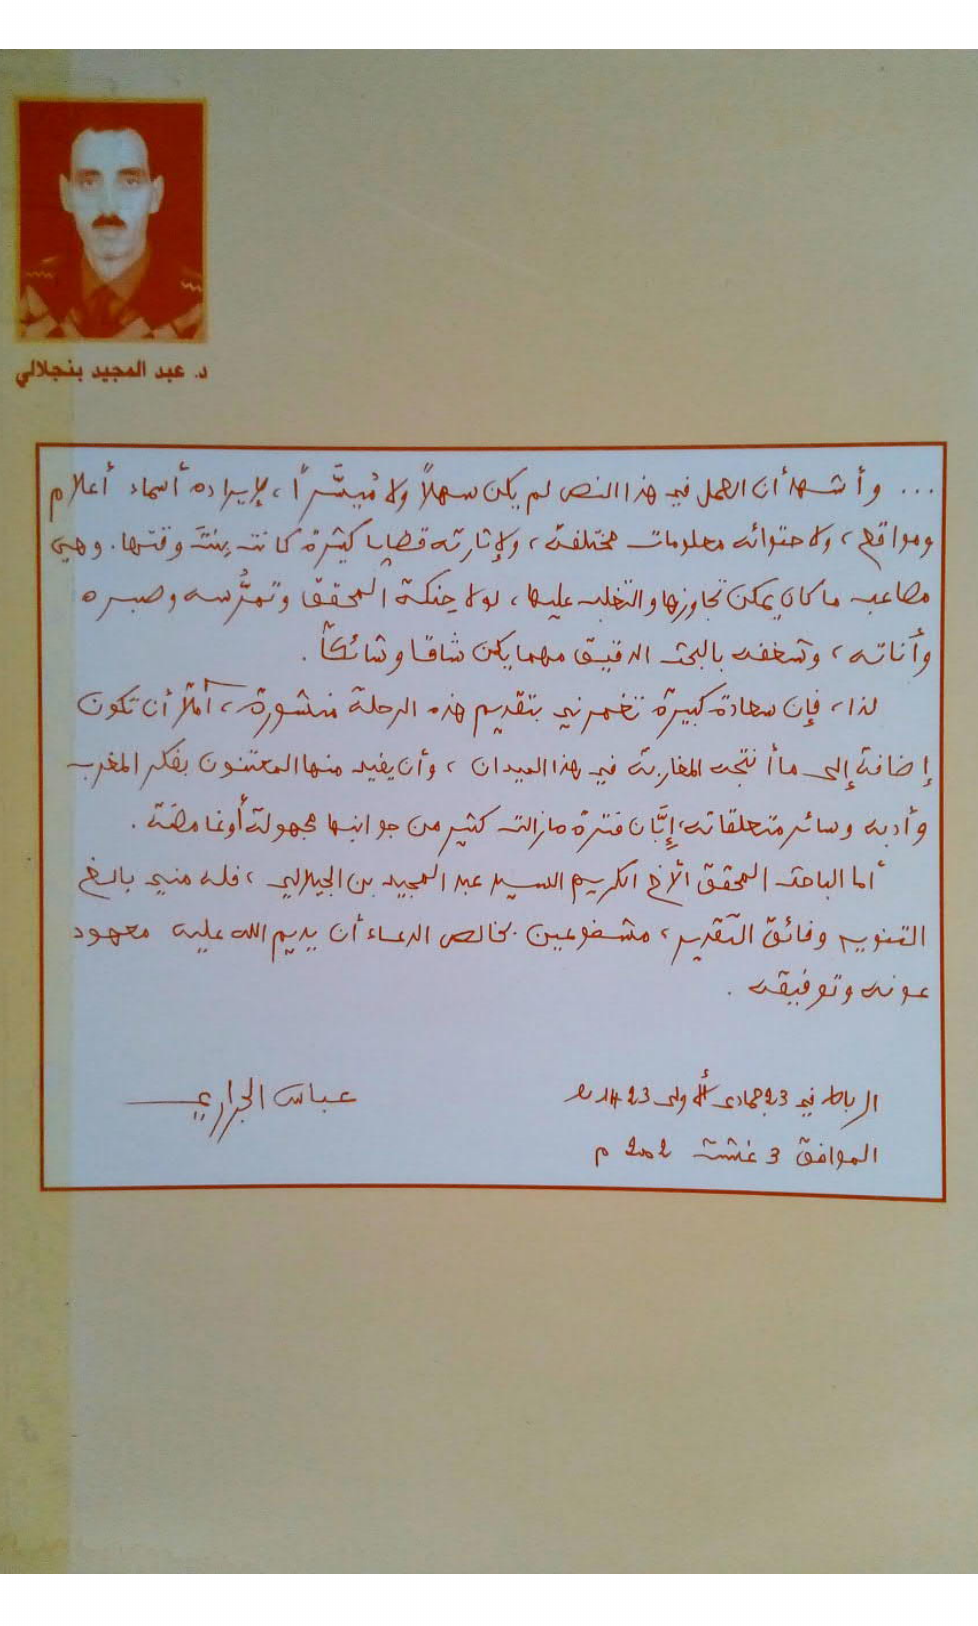 د. عبد المجيد بنجلالي
... وأشهد أن العمل في هذا النص لم يكن سهلاً ولا مُيسَّراً، لإيراده أسماء أعلام
ومواقع، ولاحتوائه معلومات مختلفة، ولإثارته قضايا كثيرة كانت بنتَ وقتها. وهي
مصاعب ما كان يمكن تجاوزها والتغلب عليها، لولا حِنكة المحقق وتمرُّسه وصبره
وأناته، وشغفه بالبحث الدقيق مهما يكن شاقا وشائكاً.
لذا، فإن سعادة كبيرة تغمرني بتقديم هذه الرحلة منشورة، آملاً أن تكون
إضافة إلى ما أنتجه المغاربة في هذا الميدان، وأن يفيد منها المعتنون بفكر المغرب
وأدبه وسائر متعلقاته، إبَّان فترة مازالت كثير من جوانبها مجهولة أو غامضة.
أما الباحث المحقق الأخ الكريم السيد عبد المجيد بن الجيلالي، فله مني بالغ
التنويه وفائق التقدير، مشفوعين بخالص الدعاء أن يديم الله عليه معهود
عونه وتوفيقه.
الرباط في 23 جمادى الأولى 1423 هـ
عباس الجراري
الموافق 3 غشت 2002 م